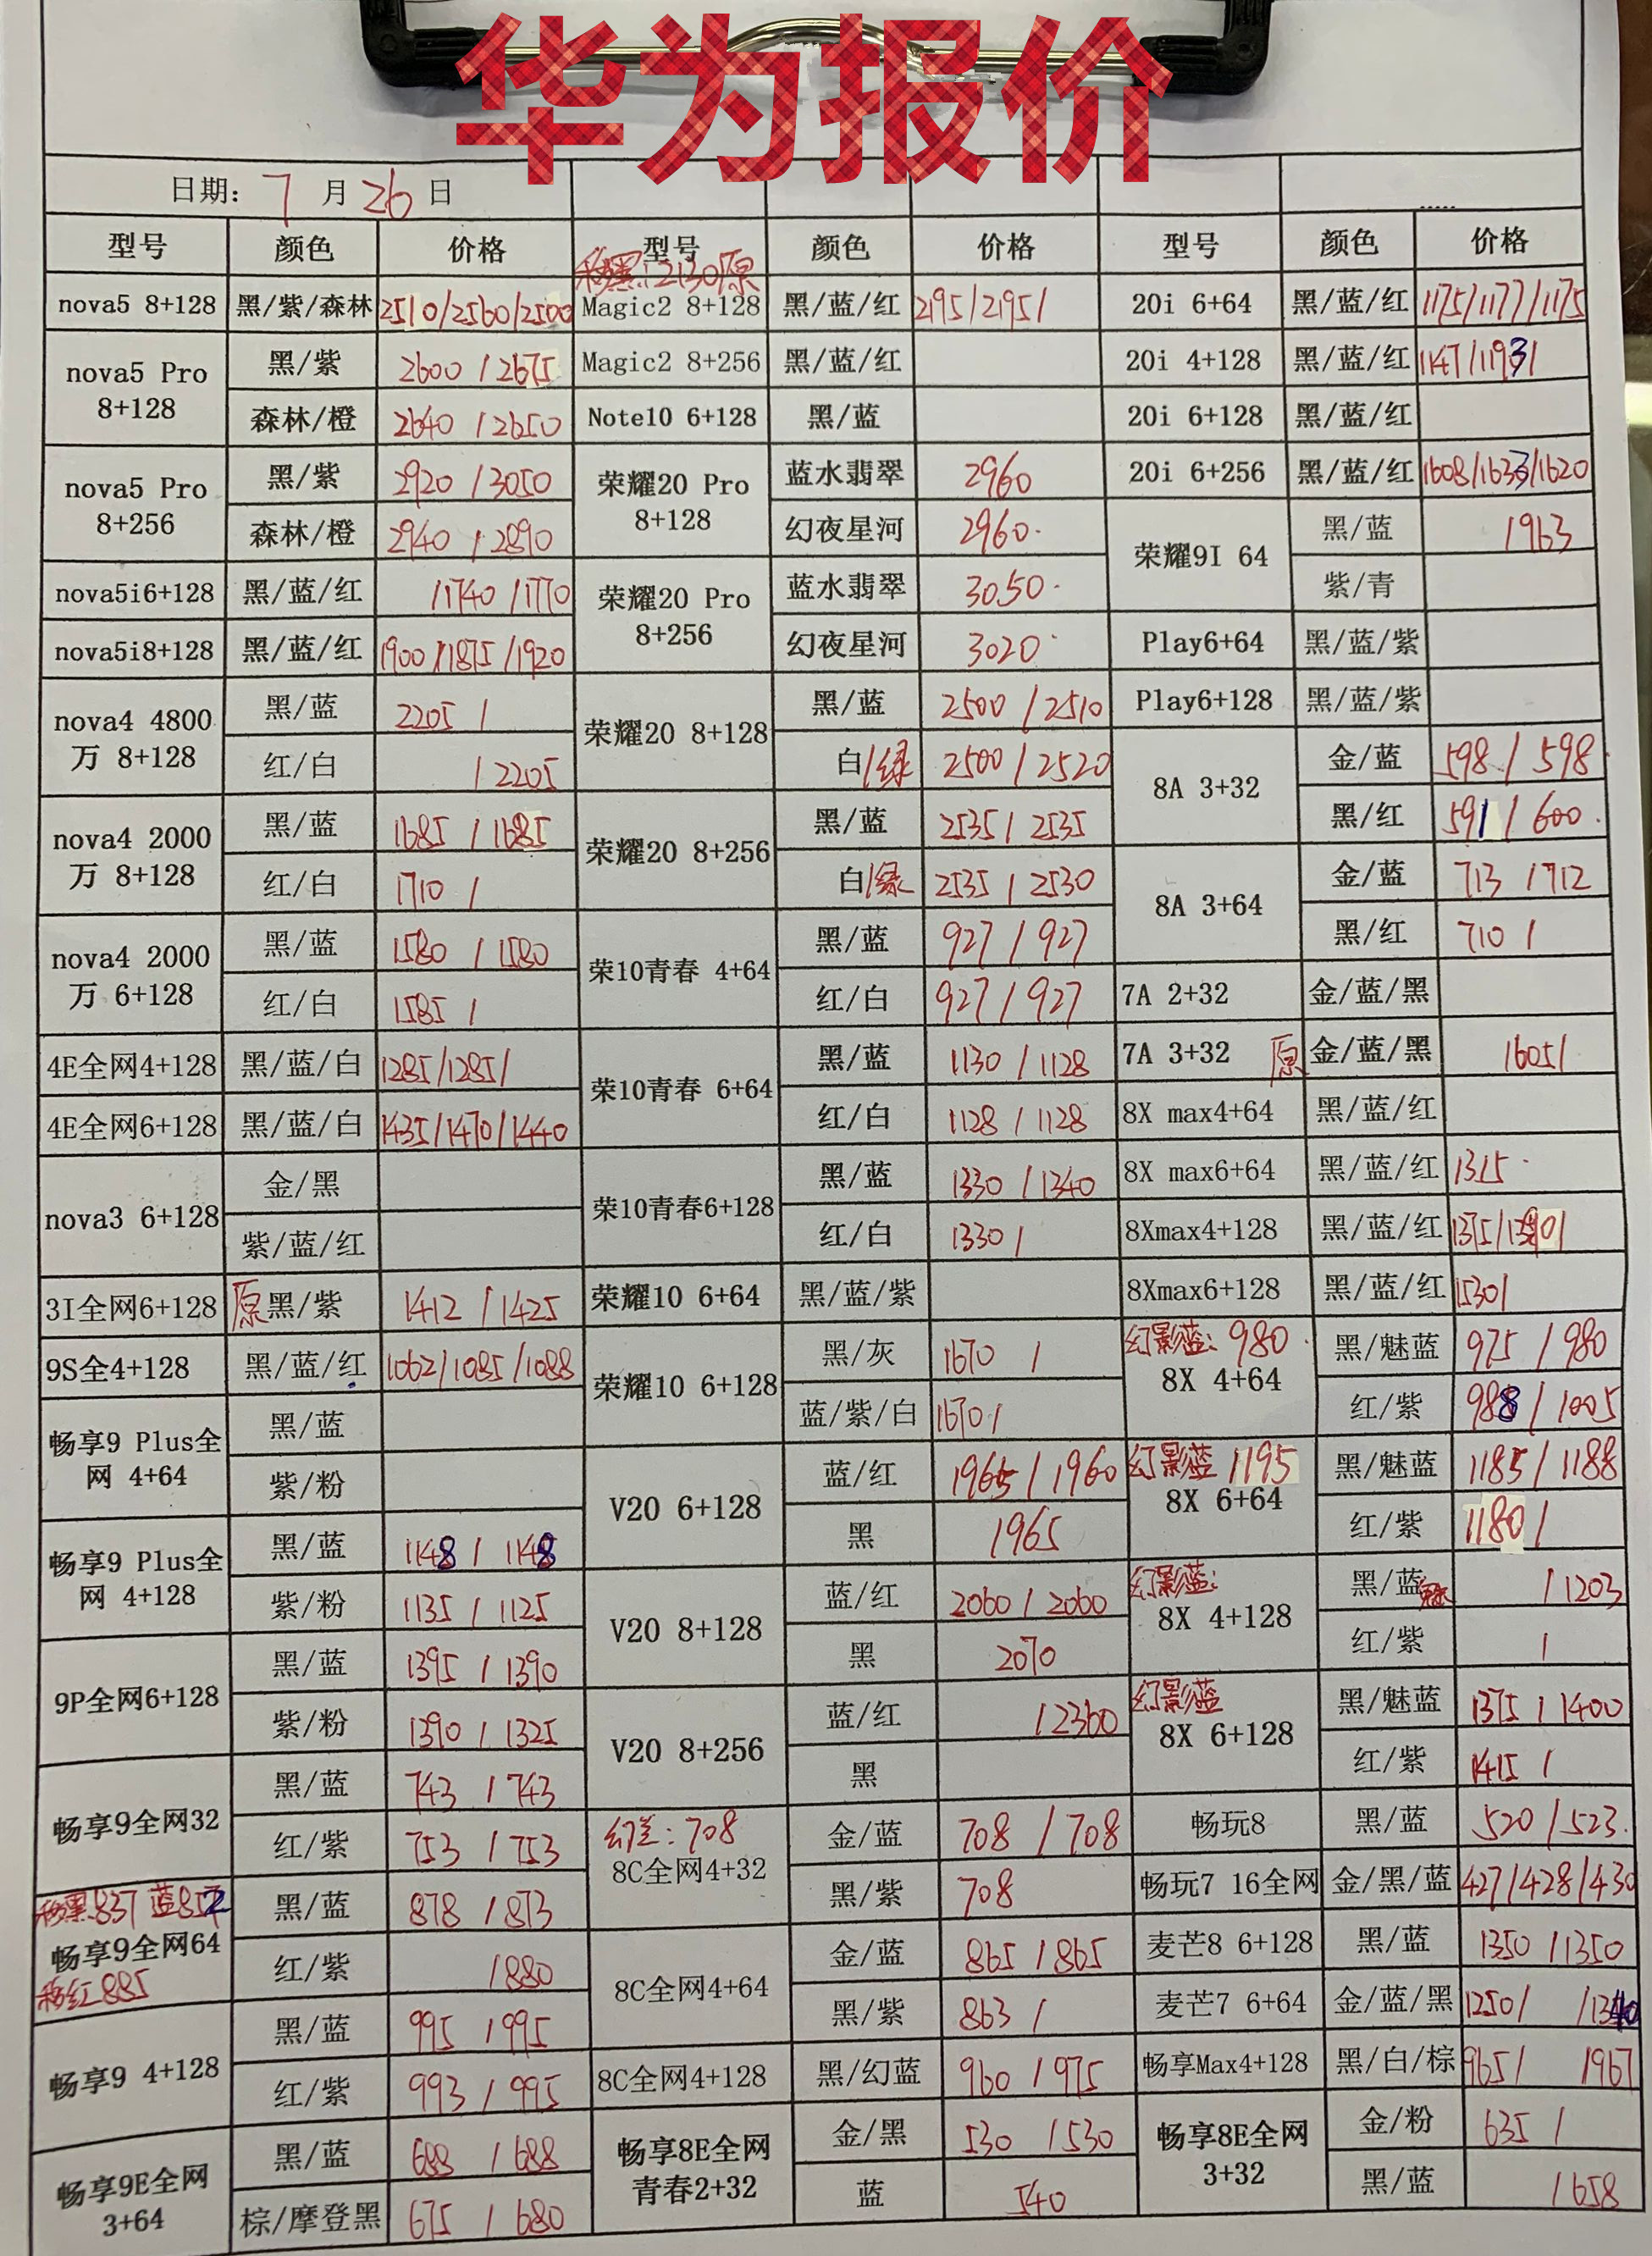 华为报价
日期: 7 月 26 日
型号 颜色 价格 型号 颜色 价格 型号 颜色 价格
移黑:2130原
nova5 8+128 黑/紫/森林 2510/2560/2500 Magic2 8+128 黑/蓝/红 2195/2195/ 20i 6+64 黑/蓝/红 1175/1177/1175
nova5 Pro 8+128 黑/紫 2600/2675 Magic2 8+256 黑/蓝/红 20i 4+128 黑/蓝/红 1147/1193/
森林/橙 2640/2650 Note10 6+128 黑/蓝 20i 6+128 黑/蓝/红
nova5 Pro 8+256 黑/紫 2920/3050 荣耀20 Pro 8+128 蓝水翡翠 2960 20i 6+256 黑/蓝/红 1608/1633/1620
森林/橙 2940/2890 幻夜星河 2960 荣耀9I 64 黑/蓝 1963
nova5i6+128 黑/蓝/红 /1740/1770 荣耀20 Pro 8+256 蓝水翡翠 3050 紫/青
nova5i8+128 黑/蓝/红 1900/1875/1920 幻夜星河 3020 Play6+64 黑/蓝/紫
nova4 4800万 8+128 黑/蓝 2205/ 荣耀20 8+128 黑/蓝 2500/2510 Play6+128 黑/蓝/紫
红/白 /2205 白/绿 2500/2520 8A 3+32 金/蓝 598/598
nova4 2000万 8+128 黑/蓝 1685/1685 荣耀20 8+256 黑/蓝 2535/2535 黑/红 591/600
红/白 1710/ 白/绿 2535/2530 8A 3+64 金/蓝 713/712
nova4 2000万 6+128 黑/蓝 1580/1580 荣10青春 4+64 黑/蓝 927/927 黑/红 710/
红/白 1585/ 红/白 927/927 7A 2+32 金/蓝/黑
4E全网4+128 黑/蓝/白 1285/1285/ 荣10青春 6+64 黑/蓝 1130/1128 7A 3+32 原 金/蓝/黑 /605/
4E全网6+128 黑/蓝/白 1435/1470/1440 红/白 1128/1128 8X max4+64 黑/蓝/红
nova3 6+128 金/黑 荣10青春6+128 黑/蓝 1330/1340 8X max6+64 黑/蓝/红 1315
紫/蓝/红 红/白 1330/ 8Xmax4+128 黑/蓝/红 1375/1390/
3I全网6+128 原 黑/紫 1412/1425 荣耀10 6+64 黑/蓝/紫 8Xmax6+128 黑/蓝/红 1530/
9S全4+128 黑/蓝/红 1062/1085/1088 荣耀10 6+128 黑/灰 1670/ 幻影蓝:980 8X 4+64 黑/魅蓝 975/980
畅享9 Plus全网 4+64 黑/蓝 蓝/紫/白 1670/ 红/紫 988/1005
紫/粉 V20 6+128 蓝/红 1965/1960 幻影蓝 1195 8X 6+64 黑/魅蓝 1185/1188
畅享9 Plus全网 4+128 黑/蓝 1148/1148 黑 1965 红/紫 1180/
紫/粉 1135/1125 V20 8+128 蓝/红 2060/2060 幻影蓝: 8X 4+128 黑/蓝 魅 /1203
9P全网6+128 黑/蓝 1395/1390 黑 2070 红/紫 /
紫/粉 1390/1325 V20 8+256 蓝/红 /2360 幻影蓝 8X 6+128 黑/魅蓝 1375/1400
畅享9全网32 黑/蓝 743/743 黑 红/紫 1415/
红/紫 753/753 幻兰:708 8C全网4+32 金/蓝 708/708 畅玩8 黑/蓝 520/523
移黑:837 蓝852 畅享9全网64 移红885 黑/蓝 878/873 黑/紫 708 畅玩7 16全网 金/黑/蓝 427/428/430
红/紫 /880 8C全网4+64 金/蓝 865/865 麦芒8 6+128 黑/蓝 1350/1350
畅享9 4+128 黑/蓝 995/995 黑/紫 863/ 麦芒7 6+64 金/蓝/黑 1250/ /1340
红/紫 993/995 8C全网4+128 黑/幻蓝 960/975 畅享Max4+128 黑/白/棕 965/ 1967
畅享9E全网 3+64 黑/蓝 688/688 畅享8E全网青春2+32 金/黑 530/530 畅享8E全网 3+32 金/粉 635/
棕/摩登黑 675/680 蓝 540 黑/蓝 /658